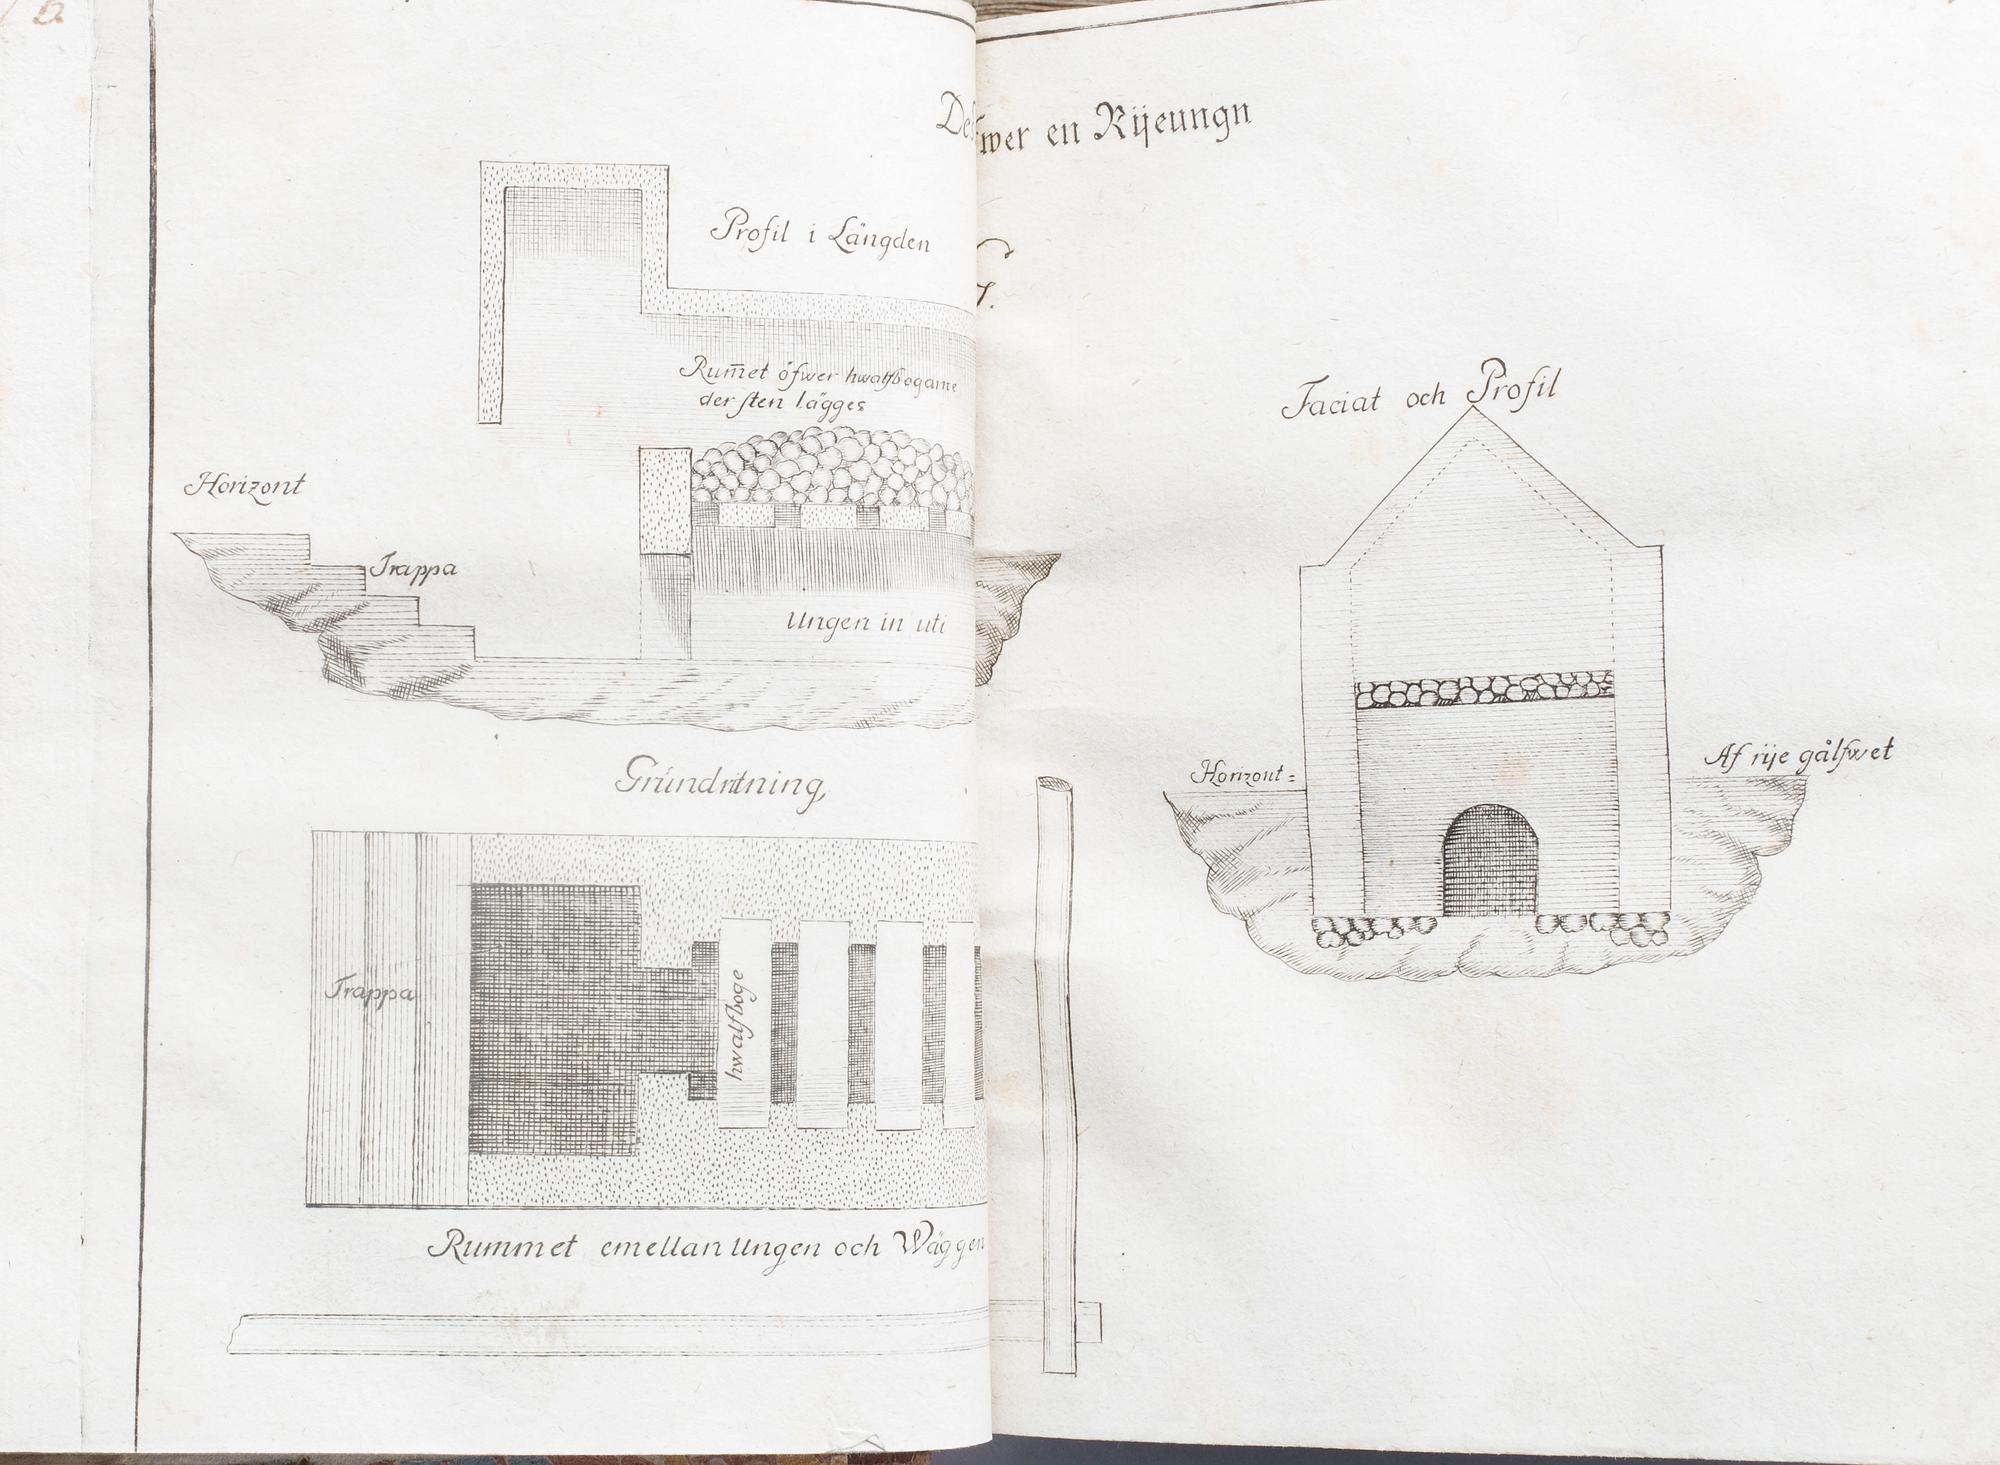 wer en Rijeungn
Profil i Längden
Rum̅et öfwer hwalfbogarne
der sten lägges
Horizont
Trappa
Ungen in uti
Grundritning,
Trappa
hwalfboge
Rummet emellan Ungen och Wäggen
Faciat och Profil
Horizont=
Af rije gålfwet